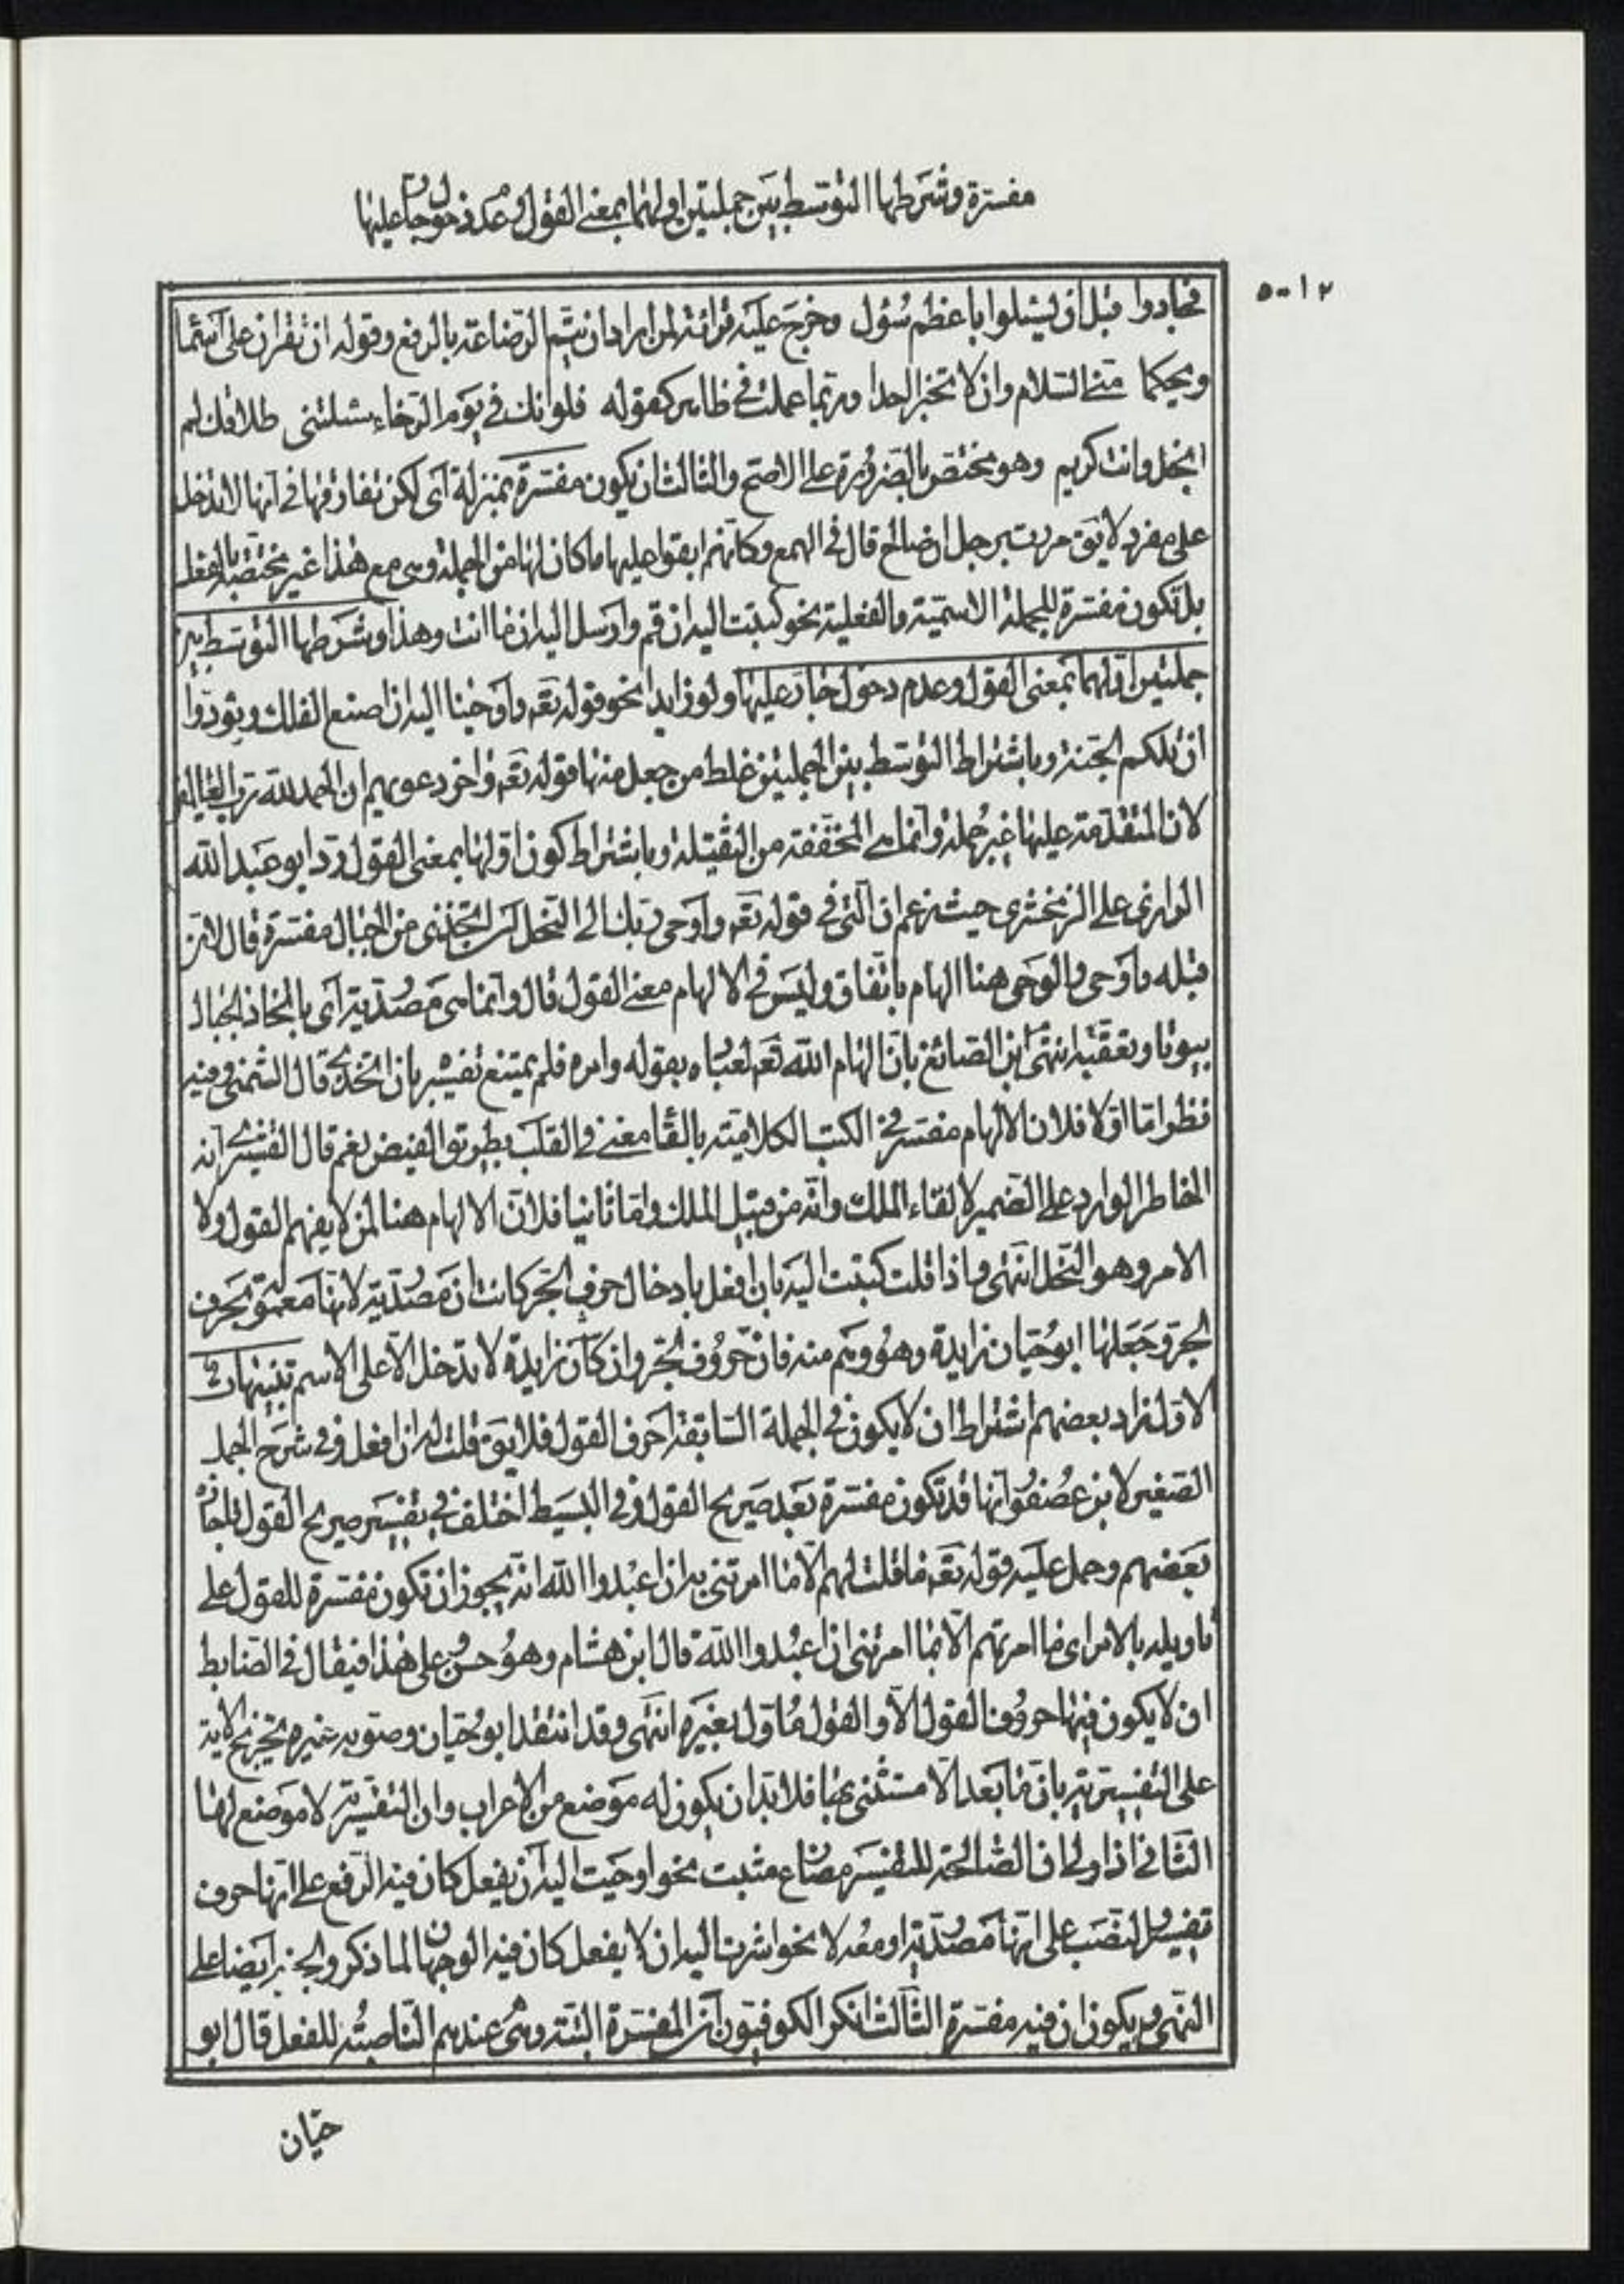 مفسرة وشرطها التوسط بين جملتين اولهما بمعنى القول وعدم دخول جار عليها
٥٠١٢
فجادوا قبل ان يسئلوا باعظم سؤل وخرج عليه قرائة لمن اراد ان يتم الرضاعة بالرفع وقوله ان تقرآن على اسماء
ويحكما مني السلام وان لا تخبرا احدا وربما عملت في ظاهر كقوله فلو انك في يوم الرخاء سئلتني طلاقك لم
ابخل وانت كريم وهو مختص بالضرورة على الاصح والثالث ان يكون مفسرة بمنزلة اى لكن تفارقها في انها لا تدخل
على مفرد لايق مررت برجل ان صالح قال في الهمع وكانهم ابقوا عليها ما كان لها من الجملة وهي مع هذا غير مختصة بالفعل
بل تكون مفسرة للجملة الاسمية والفعلية نحو كتبت اليه ان قم وارسل اليه ان ما انت وهذا وشرطها التوسط بين
جملتين اولهما بمعنى القول وعدم دخول جار عليها ولو زايدا نحو قوله تعه واوحينا اليه ان اصنع الفلك ونودوا
ان تلكم الجنة وباشتراط التوسط بين الجملتين غلط من جعل منها قوله تعه واخر دعويهم ان الحمد لله رب العالمين
لان المتقدمة عليها غير جملة وانما هي المخففة من الثقيلة وباشتراط كون اولها بمعنى القول رد ابو عبد الله
الرازي على الزمخشري حيث زعم ان التي في قوله تعه واوحى ربك الى النحل ان اتخذي من الجبال مفسرة قال لان
قبله واوحى والوحى هنا الهام باتفاق وليس في الالهام معنى القول قال وانما هي مصدرية اى باتخاذ الجبال
بيوتا وتعقبه انتهى ابن الصائغ بان الهام الله تعه لعباده بقوله وامره فلم يمتنع تفسير بان اتخذي قال الشمني وفيه
نظر اما اولا فلان الالهام مفسر في الكتب الكلامية بالقاء معنى في القلب بطريق الفيض نعم قال القشيري انه
الخاطر الوارد على الضمير لالقاء الملك وانه من قبيل الملك واما ثانيا فلان الالهام هنا لمن لا يفهم القول ولا
الامر وهو النحل انتهى واذا قلت كتبت اليه بان افعل بادخال حرف الجر كانت ان مصدرية لانها معمولة بحرف
الجر وجعلها ابو حيان زايدة وهو وهم منه فان حروف الجر وان كان زايدة لا تدخل الا على الاسم تنبيهات
الاول زاد بعضهم اشتراط ان لا يكون في الجملة السابقة احرف القول فلايق قلت له ان افعل وفي شرح الجمل
الصغير لابن عصفور انها قد تكون مفسرة بعد صريح القول وفي البسيط اختلف في تفسير صريح القول فاجازه
بعضهم وحمل عليه قوله تعه ما قلت لهم الا ما امرتني به ان اعبدوا الله انه يجوز ان تكون مفسرة للقول على
تاويله بالامر اى ما امرتهم الا بما امرتني ان اعبدوا الله قال ابن هشام وهو حسن وعلى هذا فيقال في الضابط
ان لا يكون فيها حروف القول الا والقول ماول بغيره انتهى وقد انتقد ابو حيان وصوبه غيره تخريج الاية
على التفسيرية بان ما بعد الا مستثنى بها فلا بد ان يكون له موضع من الاعراب وان التفسيرية لا موضع لها
الثاني اذا ولي ان الصالحة للتفسير مضارع مثبت نحو اوحيت اليه ان يفعل كان فيه الرفع على انها حرف
تفسير والنصب على انها مصدرية او معه لا نحو اشرت اليه ان لا يفعل كان فيه الوجهان لما ذكر والجزم ايضا على
النهى ويكون ان فيه مفسرة الثالث انكر الكوفيون ان المفسرة البتة وهي عندهم الناصبة للفعل قال ابو
حيان